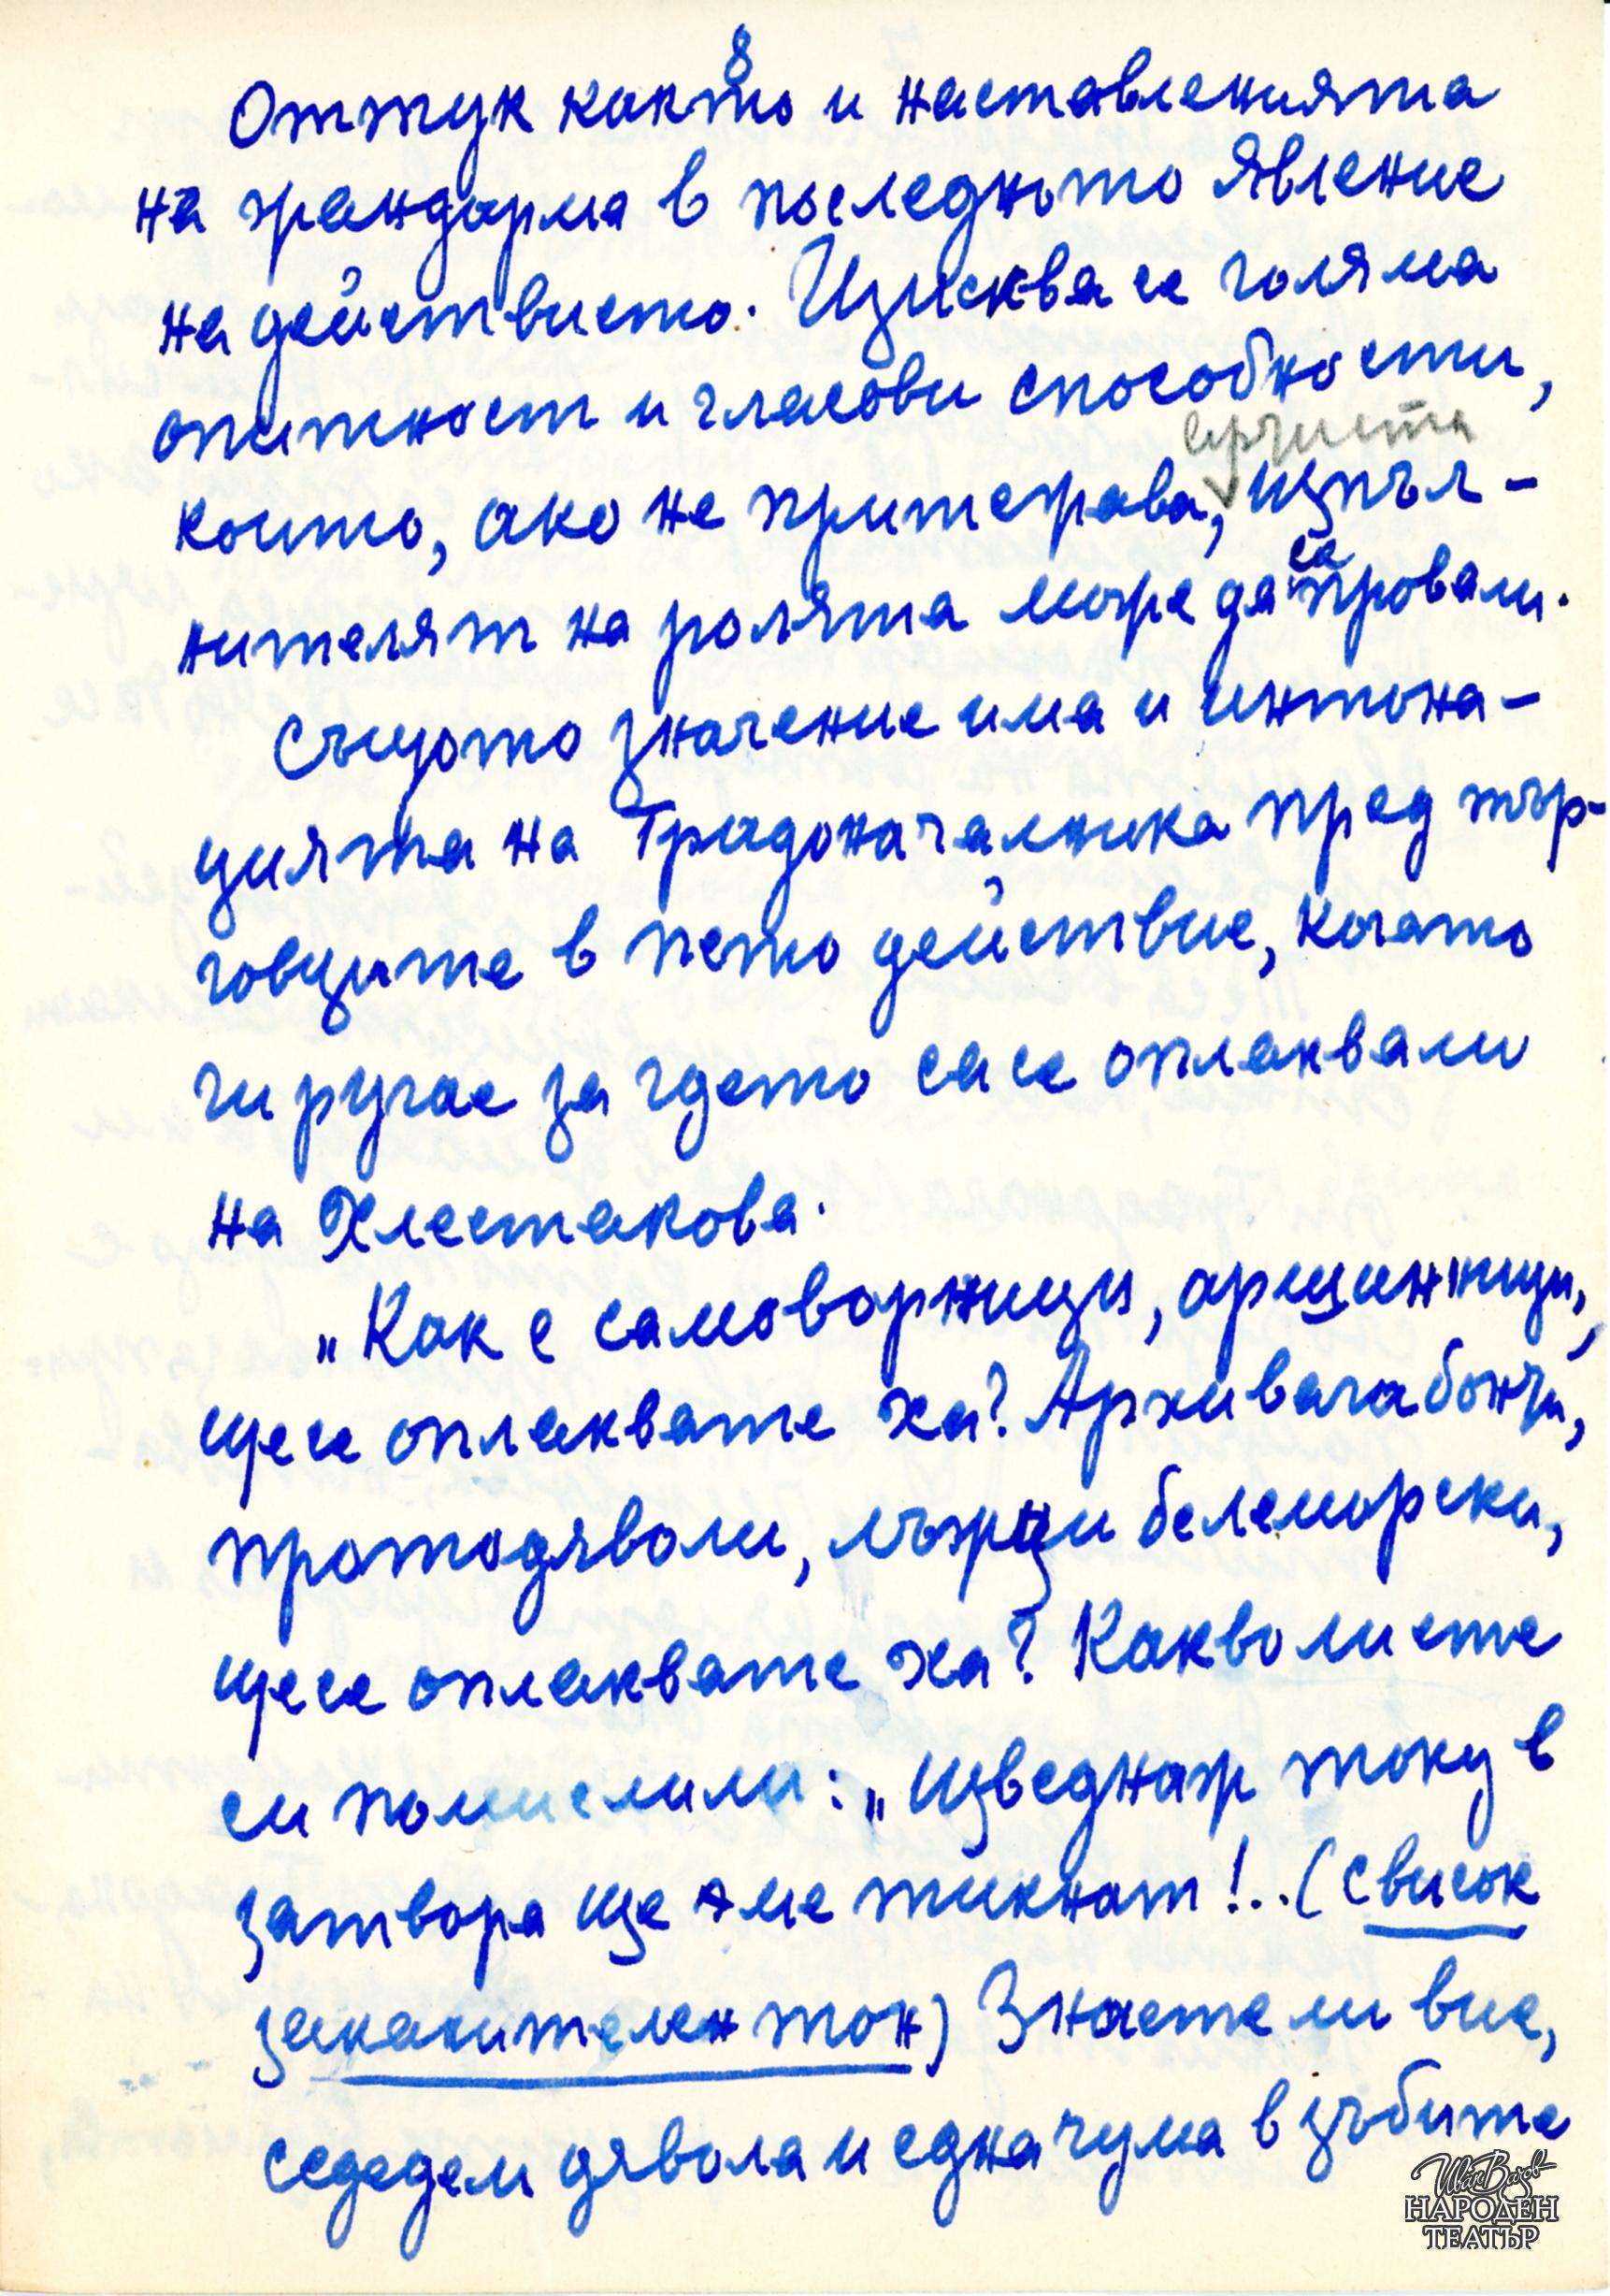 8
Оттук както и наставленията
на жандарма в последното явление
на действието. Изисква се голяма
опитност и гласови способности,
които, ако не притежава, изпъл-
нителят на ролята може да се провали.
Същото значение има и интона-
цията на Градоначалника пред тър-
говците в пето действие, когато
ги ругае за гдето са се оплаквали
на Хлестакова.
„Как е самоворжици, аршинжици,
ще се оплаквате ха? Архивагабонти,
протодяволи, лъжци белеморски,
ще се оплаквате ха? Какво ли сте
си помислили: „Изведнаж току в
затвора ще ме тикнат!.. (с висок
заканителен тон) Знаете ли вие,
седедем дявола и една чума в зъбите
Иван Вазов
НАРОДЕН
ТЕАТЪР